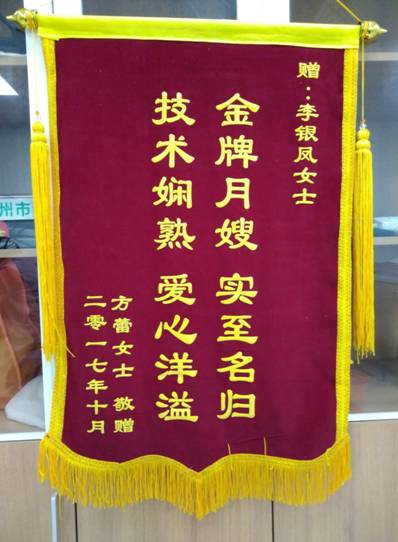 赠：李银凤女士
金牌月嫂 实至名归
技术娴熟 爱心洋溢
方蕾女士 敬赠
二零一七年十月
州市